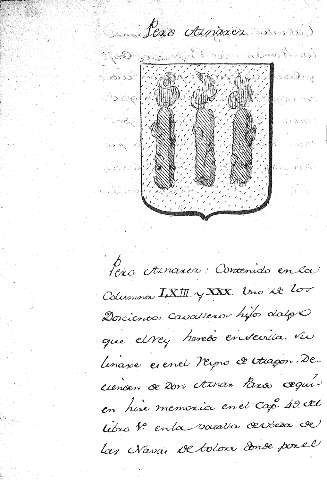 Pero Aznarez
Pero Aznarez: Contenido en la
Columna I, XIII y XXX. Uno de los
Docientos Cavalleros hijos dalgo
que el Rey heredó en Sevilla. Su
linaxe es en el Reyno de Aragon. De
cienden de Don Aznar Pardo de qui-
en hize memoria en el Cap.º 42. del
libro 1º en la batalla
de las Navas de tolosa donde por el